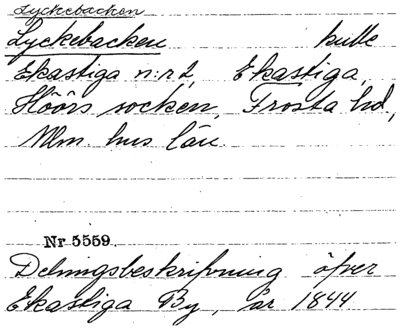 Lyckebacken
Lyckebacken kulle
Ekastiga n:r 2, Ekastiga,
Höörs socken, Frosta hd,
Mlm hus län.
Nr 5559.
Delningsbeskrifning öfver
Ekastiga By, år 1844